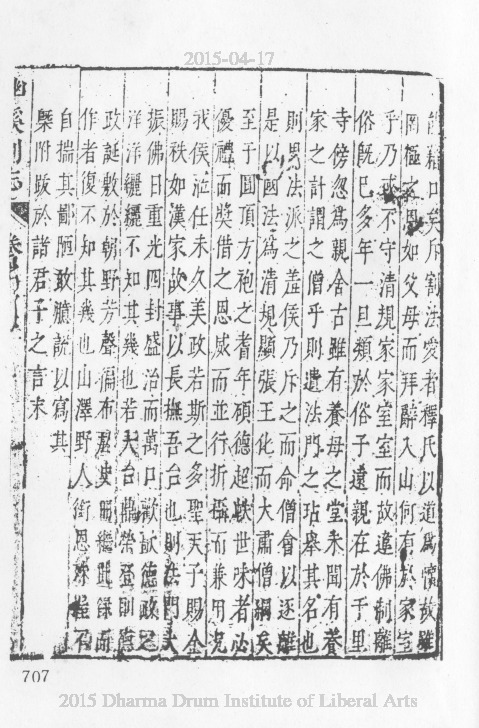 2015-04-17
餬口矣斥割法愛者釋氏以道為懷故雖
罔極之恩如父母而拜辭入山何有於家室
乎乃或不守清規家家室室而故違佛制離
俗既已多年一旦類於俗子遠親在於千里
寺傍忽為親舍古雖有養母之堂未聞有養
家之計謂之僧乎則遺法門之玷舉其名也
則男法派之羞侯乃斥之而命僧會以逐離
是以國法為清規顯張王化而大肅僧綱矣
至于圓頂方袍之耆年碩德超軼世味者必
優禮而獎借之恩威而並行折攝而兼用況
我侯涖任未久美政若斯之多聖天子賜金
賜秩如漢家故事以長撫吾台也則法門大
振佛日重光四封盛治而萬口歌詠德政之
洋洋纚纚不知其幾也若大台鼎榮登訓
政誕敷於朝野芳聲徧布
作者復不知其幾也山澤野人銜恩
自揣其鄙陋敢膽說以寫其
槩附跋於諸君子之言末
幽溪別志
707
2015 Dharma Drum Institute of Liberal Arts